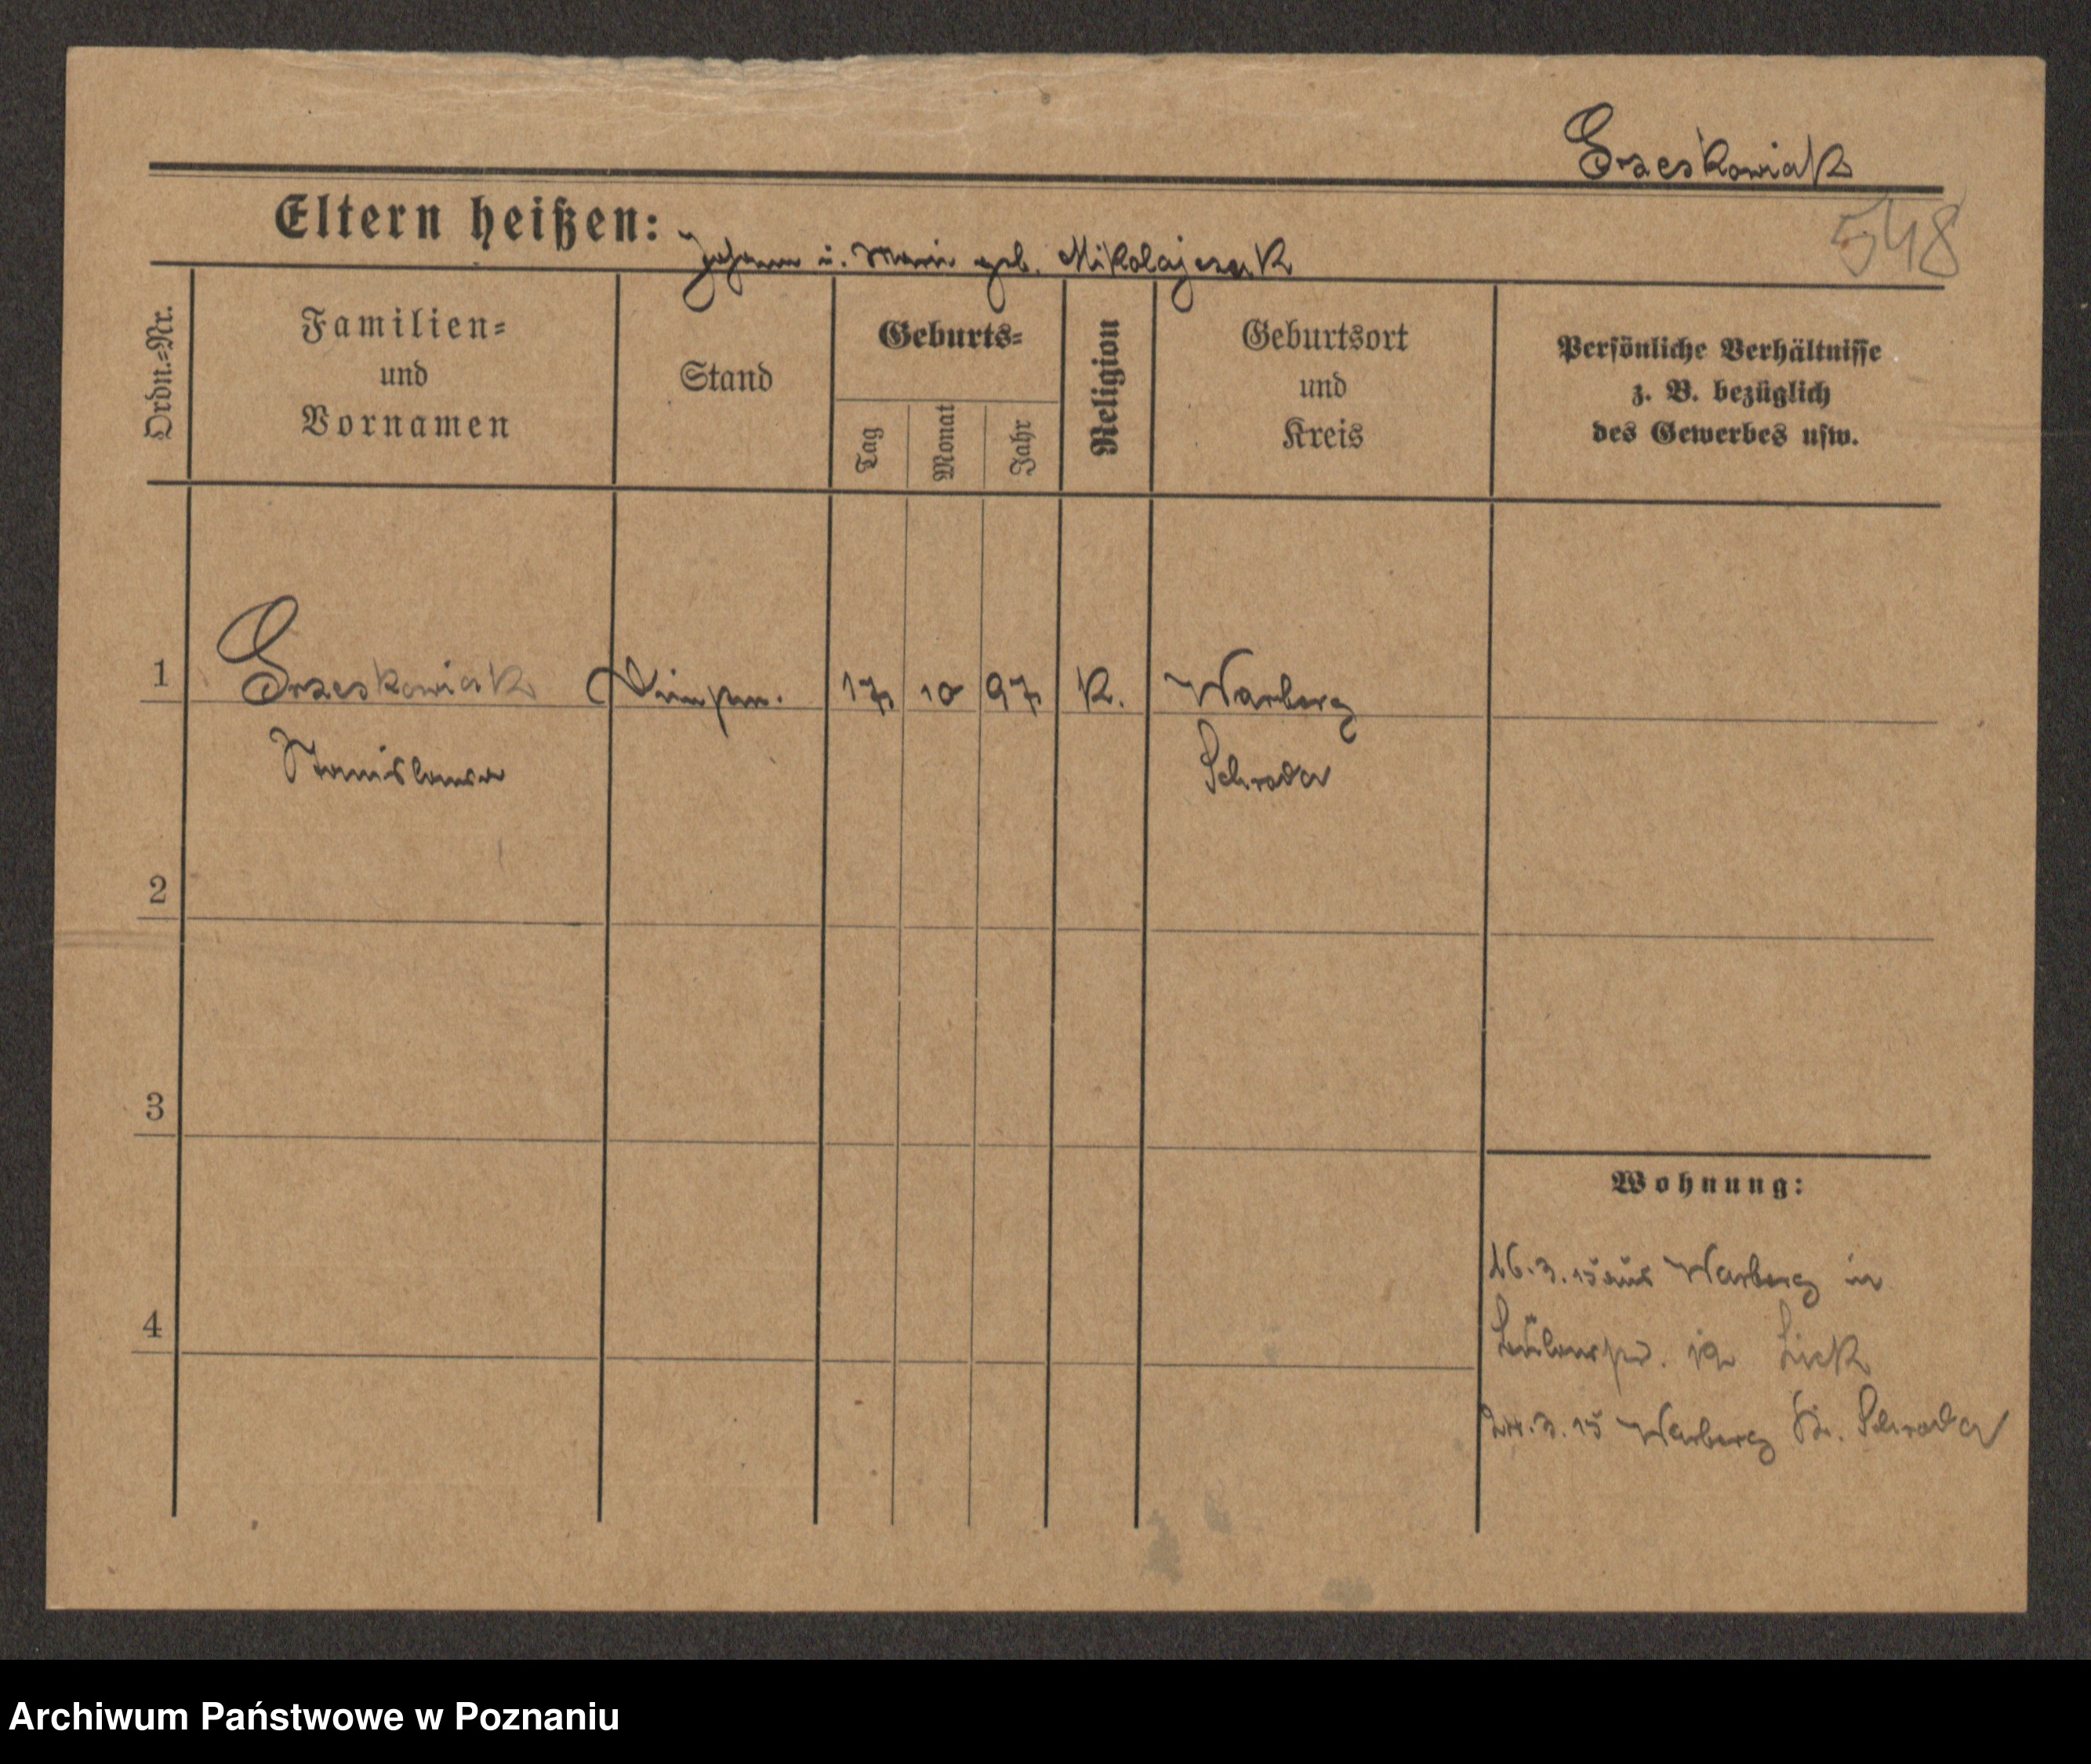 Grzeskowiak
548
Eltern heißen: Johann u. Marie geb. Mikolajczak
Ordn.-Nr.
Familien-
und
Vornamen
Stand
Geburts-
Tag
Monat
Jahr
Religion
Geburtsort
und
Kreis
Persönliche Verhältnisse
z. B. bezüglich
des Gewerbes usw.
1 Grzeskowiak 17 10 97 K. Warberg
Stanislawa Schroda
2
3
4
Wohnung:
16.3.15 aus Warberg in
19 Lick
24.3.15 Warberg Kr. Schroda
Archiwum Państwowe w Poznaniu